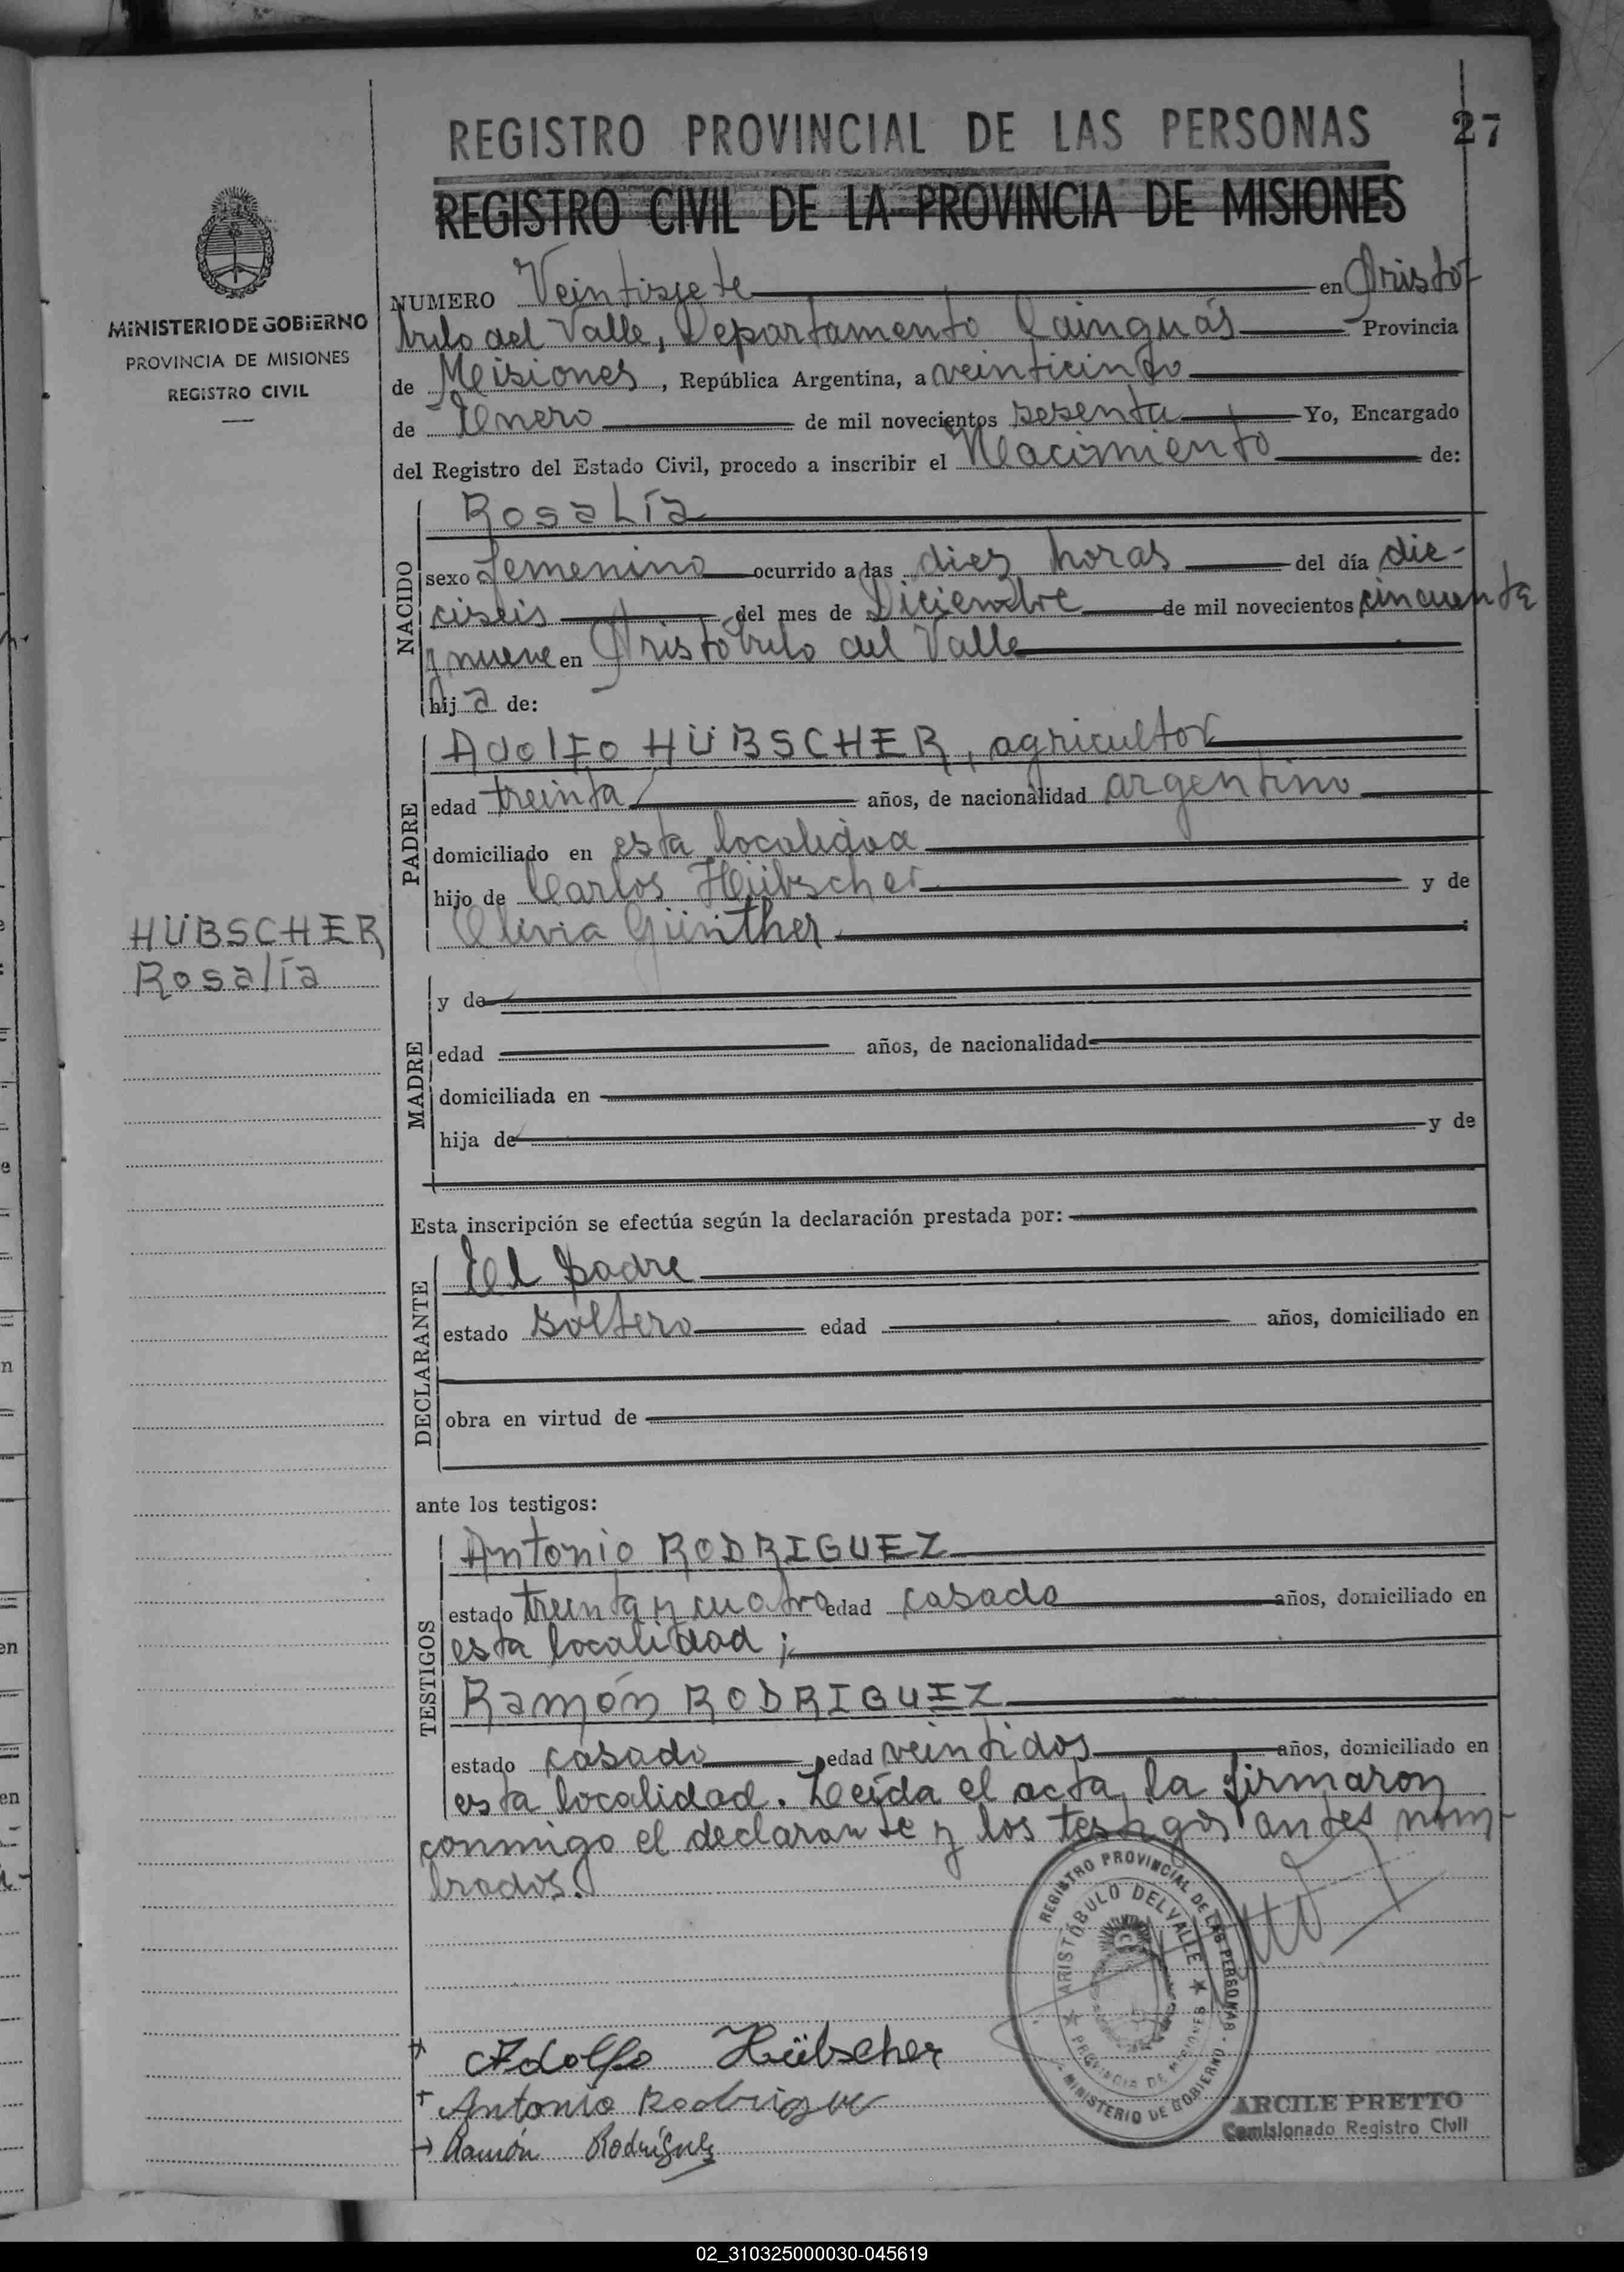 27
REGISTRO PROVINCIAL DE LAS PERSONAS
REGISTRO CIVIL DE LA PROVINCIA DE MISIONES
MINISTERIO DE GOBIERNO
PROVINCIA DE MISIONES
REGISTRO CIVIL
HÜBSCHER
Rosalía
NUMERO Veintisiete en Aristó-
bulo del Valle, Departamento Cainguás Provincia
de Misiones, República Argentina, a veinticinco
de Enero de mil novecientos sesenta Yo, Encargado
del Registro del Estado Civil, procedo a inscribir el Nacimiento de:
NACIDO
Rosalía
sexo femenino ocurrido a las diez horas del día die-
ciseis del mes de Diciembre de mil novecientos cincuenta
y nueve en Aristóbulo del Valle
hija de:
PADRE
Adolfo HÜBSCHER, agricultor
edad treinta años, de nacionalidad argentino
domiciliado en esta localidad
hijo de Carlos Hübscher y de
Olivia Günther
MADRE
y de
edad años, de nacionalidad
domiciliada en
hija de y de
Esta inscripción se efectúa según la declaración prestada por:
DECLARANTE
El padre
estado soltero edad años, domiciliado en
obra en virtud de
ante los testigos:
TESTIGOS
Antonio RODRIGUEZ
estado treinta y cuatro edad casado años, domiciliado en
esta localidad;
Ramón RODRIGUEZ
estado casado, edad veintidos años, domiciliado en
esta localidad. Leída el acta, la firmaron
conmigo el declarante y los testigos antes nom-
brados.
REGISTRO PROVINCIAL DE LAS PERSONAS - MINISTERIO DE GOBIERNO -
ARISTÓBULO DEL VALLE
PROVINCIA DE MISIONES
Adolfo Hübscher
Antonio Rodriguez
Ramón Rodríguez
ARCILE PRETTO
Comisionado Registro Civil
02_310325000030-045619